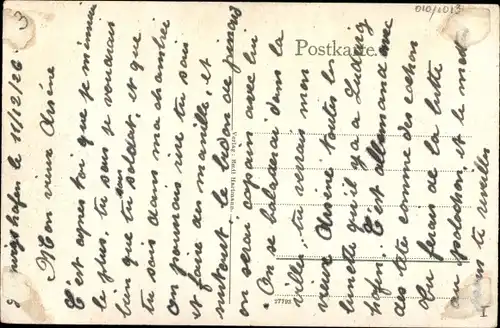 3
010/1013
Postkarte.
Verlag Emil Hartmann.
17793
I
hafen le 11/12/26
Mon vieux Arsène
C'est après toi que je m'ennuie
le plus, tu sais je voudrais
bien que tu sois soldat, et que
tu sois dans ma chambrée
on pourrais rire tu sais
et faire des manille, et
surtout le bidon de pinard
on serai copains avec lui
On se baladerai dans la
ville, tu verrais mon
vieux Arsène toutes les
binette qu'il y a a Ludwig
hafen. C'est allemand avec
des tête comme des cochon
Tu ferais de la lutte
au polochon et le mett
tu te reveilles